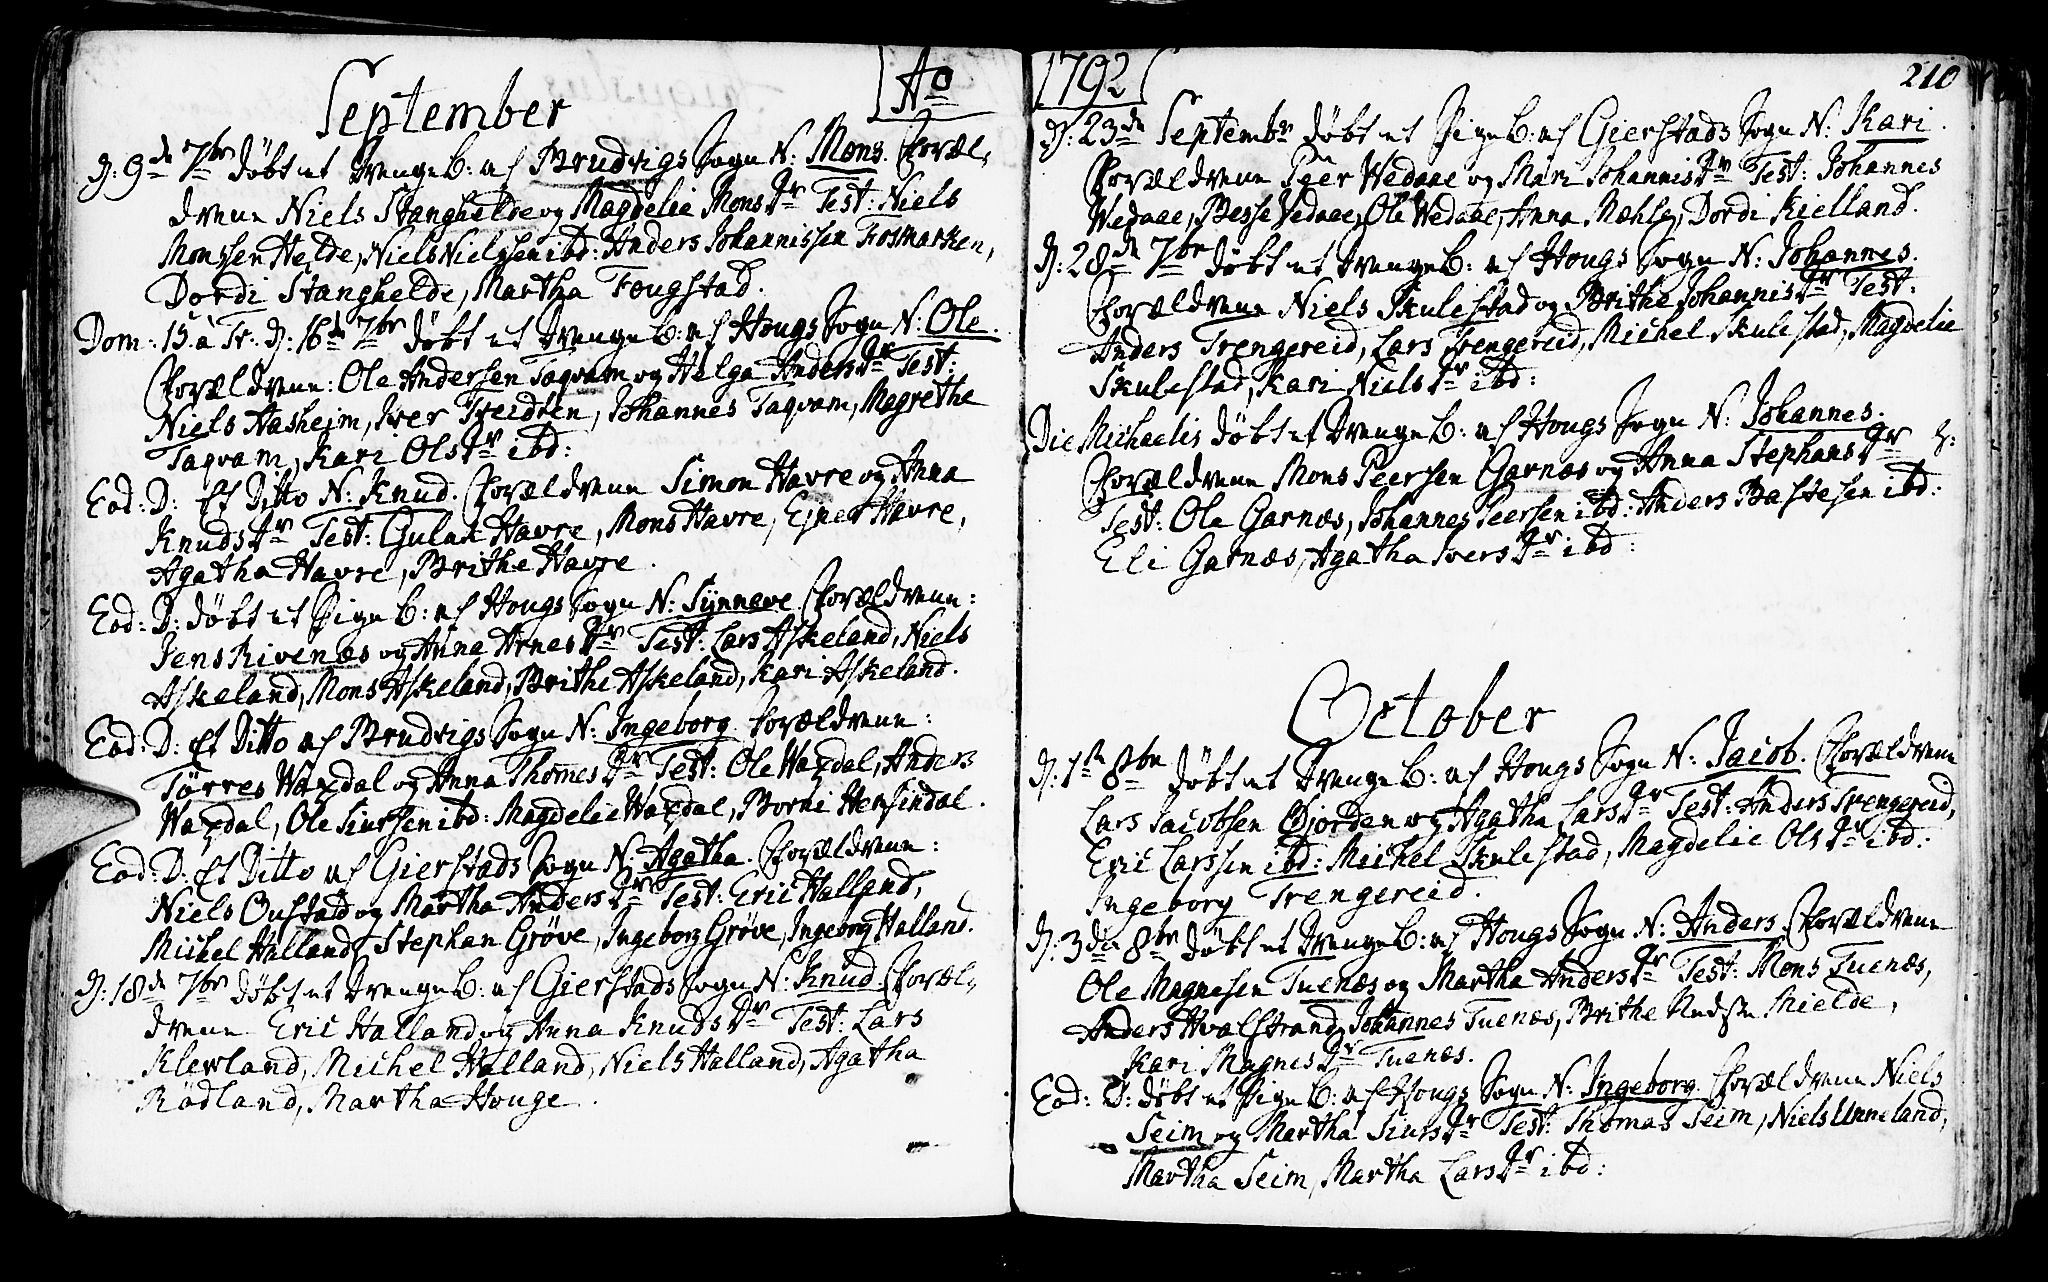 Ao
September
D: 9de 7br døbt et DrengeB: af Brudvigs Sogn N: Mons. Foræl,
drene Niels Stanghelde og Magdelie MonsDr Test: Niels
Monssen Helde, Niels Nielssen ibd: Anders Johannissen Fosmarken,
Dordi Stanghelde, Martha Fougstad.
Dom: 15. a Tr: D: 16de 7br døbt et DrengeB: af Hougs Sogn N: Ole.
Forældrene: Ole Andersen Taqvam og Helga AndersDr Test:
Niels Aasheim, Iver Treidten, Johannes Taqvam, Magrethe
Taqvam, Kari OlsDr ibd:
Eod: D: Et Ditto N: Knud. Forældrene Simon Havre og Anna
KnudsDr Test: Gulak Havre, Mons Havre, Ejner Havre,
Agatha Havre, Brithe Havre.
Eod: D: døbt et PigeB: af Hougs Sogn N: Synneve Forældrene:
Jens Rivenæs og Anna ArnesDr Test: Lars Askeland, Niels
Askeland, Mons Askeland, Brithe Askeland, Kari Askeland.
Eod: D: Et Ditto af Brudvigs Sogn N: Ingeborg Forældrene:
Tørres Waxdal og Anna ThomesDr Test: Ole Waxdal, Anders
Waxdal, Ole Siurssen ibd: Magdelie Waxdal, Borni Hersindal.
Eod: D: Et Ditto af Gierstads Sogn N: Agatha. Forældrene:
Niels Oustad og Martha AndersDr Test: Eric Halland,
Michel Halland, Stephan Grøve, Ingeborg Grøve, Ingeborg Halland.
D: 18de 7br døbt et DrengeB: af Gierstads Sogn N: Knud Foræl,
drene Eric Halland og Anna KnudsDr Test: Lars
Klevland, Michel Halland, Niels Halland, Agatha
Rødland, Martha Houge.
1792
210
D: 23de Septembr døbt et PigeB: af Gierstads Sogn N: Kari.
Forældrene Peer Wedaae og Mari JohannisDr Test: Johannes
Wedaae, Besse Vedaae, Ole Wedaae, Anna Mæhle, Dordi Kielland.
D: 28de 7br døbt et DrengeB: af Hougs Sogn N: Johannes.
Forældrene Niels Skulestad og Brithe JohannisDr Test:
Anders Trengereid, Lars Trengereid, Michel Skulestad, Magdelie
Skulestad, Kari NielsDr ibd:
Die Michaelis døbt et DrengeB: af Hougs Sogn N: Johannes.
Forældrene Mons Peersen Garnæs og Anna StephansDr
Test: Ole Garnæs, Johannes Peersen ibd: Anders Bastesen ibd:
Eli Garnæs, Agatha IversDr ibd:
October
D: 1te 8br døbt et DrengeB: af Hougs Sogn N: Jacob. Forældrene
Lars Jacobsen Gjordan og Agatha LarsDr Test: Anders Trengereid,
Eric Larssen ibd: Michel Skulestad, Magdelie OlsDr ibd:
Ingeborg Trengereid.
D: 3die 8br døbt et DrengeB: af Hougs Sogn N: Anders. Forældrene
Ole Magnesen Tuenæs og Martha AndersDr Test: Mons Tuenæs,
Anders Hvalstrand, Johannes Tuenæs, Brithe Mielde,
Kari MagnesDr Tuenæs.
Eod: D: døbt et PigeB: af Hougs Sogn N: Ingeborg. Forældrene Niels
Seim og Martha SiursDr Test: Thomas Seim, Niels Unneland,
Martha Seim, Martha LarsDr ibd: